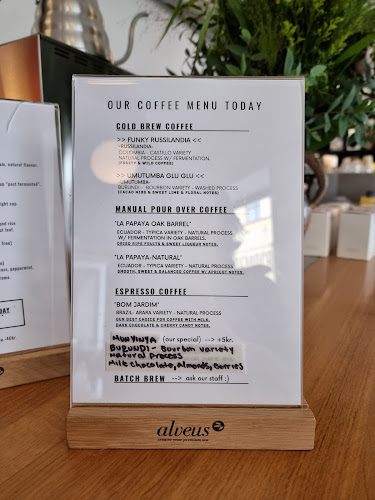 OUR COFFEE MENU TODAY
COLD BREW COFFEE
>> FUNKY RUSSILANDIA <<
-RUSSILANDIA-
COLOMBIA - CASTILLO VARIETY
NATURAL PROCESS W/ FERMENTATION.
(FRUITY & WILD COFFEE)
>> UMUTUMBA GLU GLU <<
-UMUTUMBA-
BURUNDI - BOURBON VARIETY - WASHED PROCESS
(CACAO NIBS & SWEET LIME & FLORAL NOTES)
MANUAL POUR OVER COFFEE
"LA PAPAYA OAK BARREL"
ECUADOR - TYPICA VARIETY - NATURAL PROCESS
W/ FERMENTATION IN OAK BARRELS.
DRIED RIPE FRUITS & SWEET LIQUEUR NOTES.
"LA PAPAYA-NATURAL"
ECUADOR - TYPICA VARIETY - NATURAL PROCESS
SMOOTH, SWEET & BALANCED COFFEE W/ APRICOT NOTES.
ESPRESSO COFFEE
"BOM JARDIM"
BRAZIL- ARARA VARIETY - NATURAL PROCESS
OUR BEST CHOICE FOR COFFEE WITH MILK.
DARK CHOCOLATE & CHERRY CANDY NOTES.
MUNYINYA (our special) --> +5kr.
BURUNDI - Bourbon variety
Natural process
Milk chocolate, Almonds, Berries
BATCH BREW --> ask our staff :)
alveus